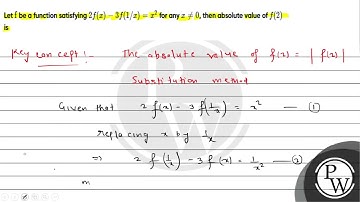 Let f be a function satisfying 2f(x) − 3f(1/x) = x² for any x ≠ 0, then absolute value of f(2)
is
Key concept! The absolute value of f(2) = |f(2)|
Substitution method
Given that 2 f(x) − 3 f(1/x) = x² — ①
replacing x by 1/x
⇒ 2 f(1/x) − 3 f(x) = 1/x² — ②
m
PW